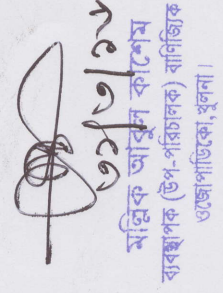 ৩১/৩/১৮
মল্লিক আবুল কাশেম
ব্যবস্থাপক (উপ-পরিচালক) বাণিজ্যিক
ওজোপাডিকো, খুলনা।